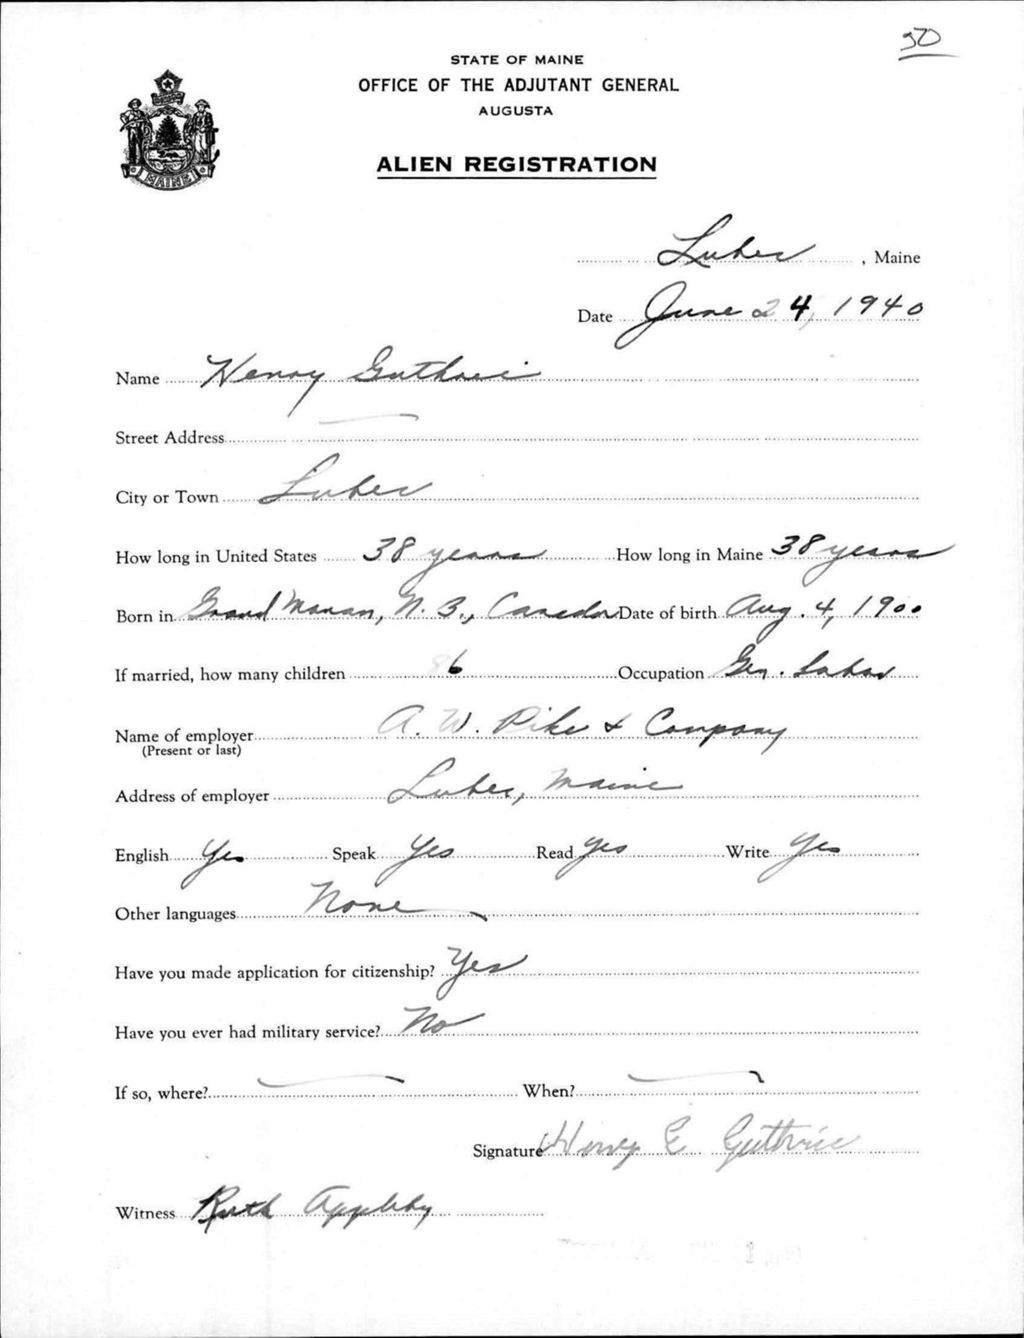 50
STATE OF MAINE
OFFICE OF THE ADJUTANT GENERAL
AUGUSTA
MAINE
ALIEN REGISTRATION
Lubec, Maine
Date June 24, 1940
Name Henry Guthrie
Street Address
City or Town Lubec
How long in United States 38 years How long in Maine 38 years
Born in Grand Manan, N. B., Canada Date of birth Aug. 4, 1900
If married, how many children 6 Occupation Gen. Labor
Name of employer A. W. Pike & Company
(Present or last)
Address of employer Lubec, Maine
English Yes Speak Yes Read Yes Write Yes
Other languages None
Have you made application for citizenship? Yes
Have you ever had military service? No
If so, where? When?
Signature Henry E Guthrie
Witness Ruth Appleby